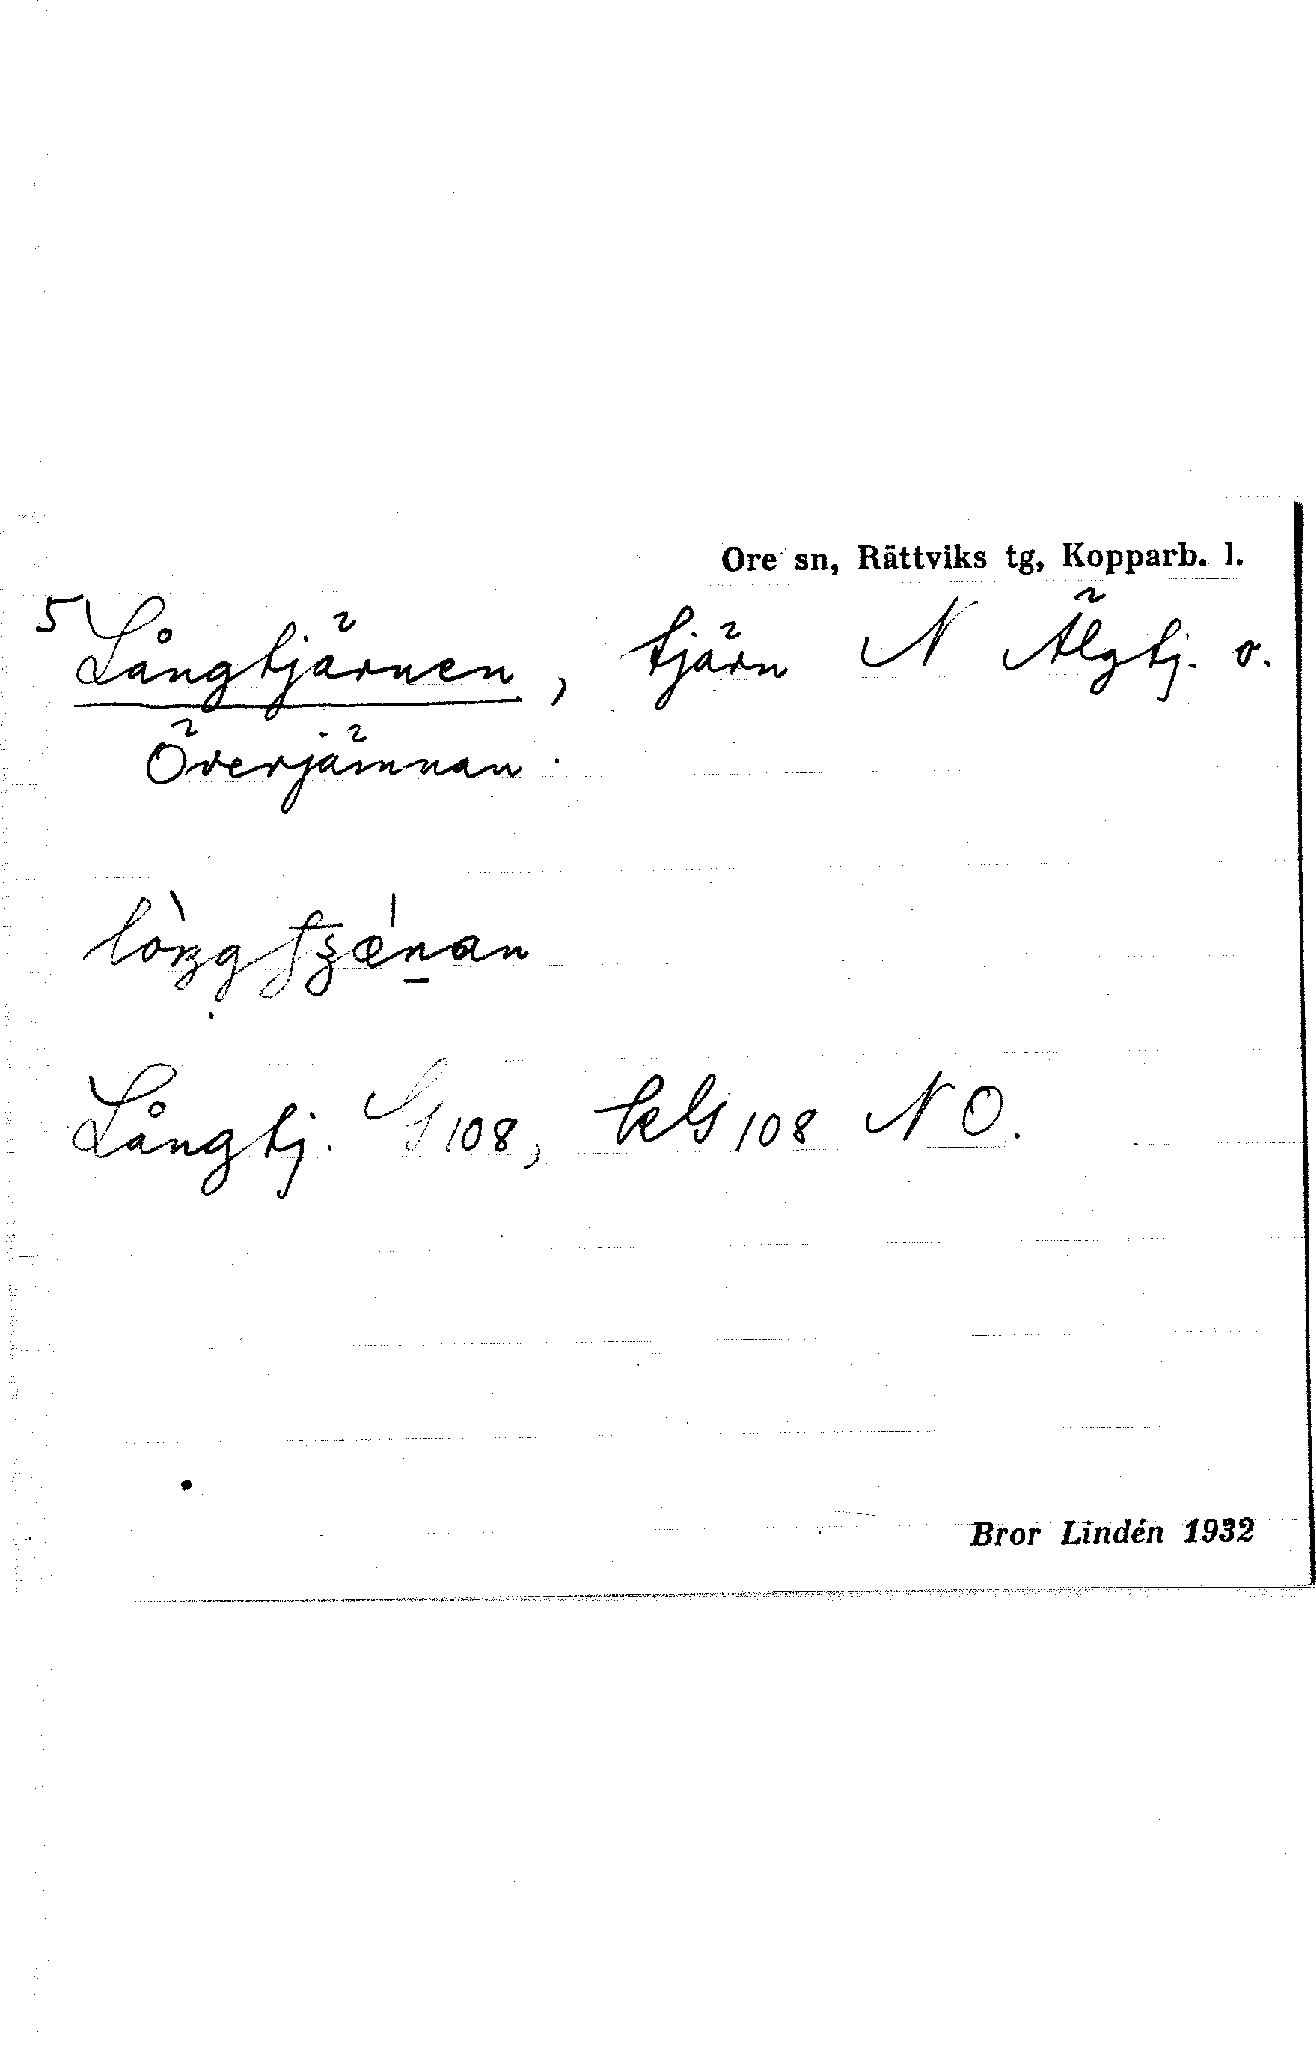 Ore sn, Rättviks tg, Kopparb. l.
5 Långtjärnen, tjärn N Älgtj. o.
Överjämnan.
Långtj. G 108, kG 108 NO.
Bror Lindén 1932